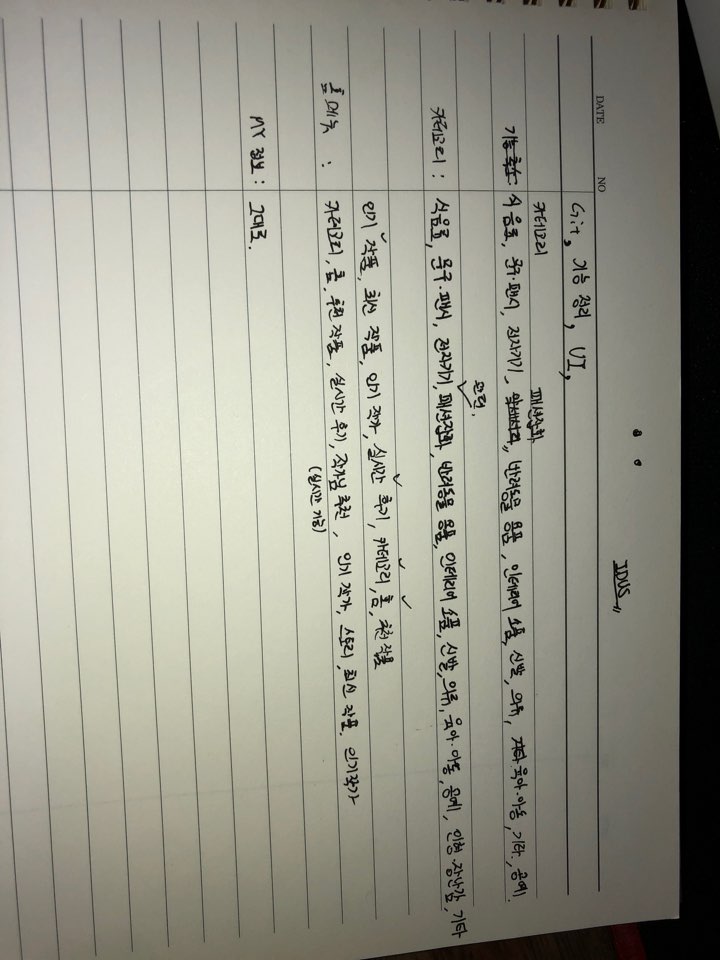 IDUS
DATE NO
Git, 기능 정리, UI,
카테고리
패션잡화
기능축소 식음료, 문구·팬시, 전자기기, 악세서리, 반려동물 용품, 인테리어 소품, 신발, 의류, 기타 육아·아동, 기타, 공예.
관련.
카테고리 : 식음료, 문구·팬시, 전자기기, 패션잡화, 반려동물 용품, 인테리어 소품, 신발, 의류, 육아·아동, 공예, 인형·장난감, 기타
인기 작품, 최신 작품, 인기 작가, 실시간 후기, 카테고리, 홈, 추천 작품
홈 메뉴 : 카테고리, 홈, 추천 작품, 실시간 후기, 작가님 추천, 인기 작가, 스토리, 최신 작품, 인기작가
(실시간 기능)
MY 정보 : 그대로.